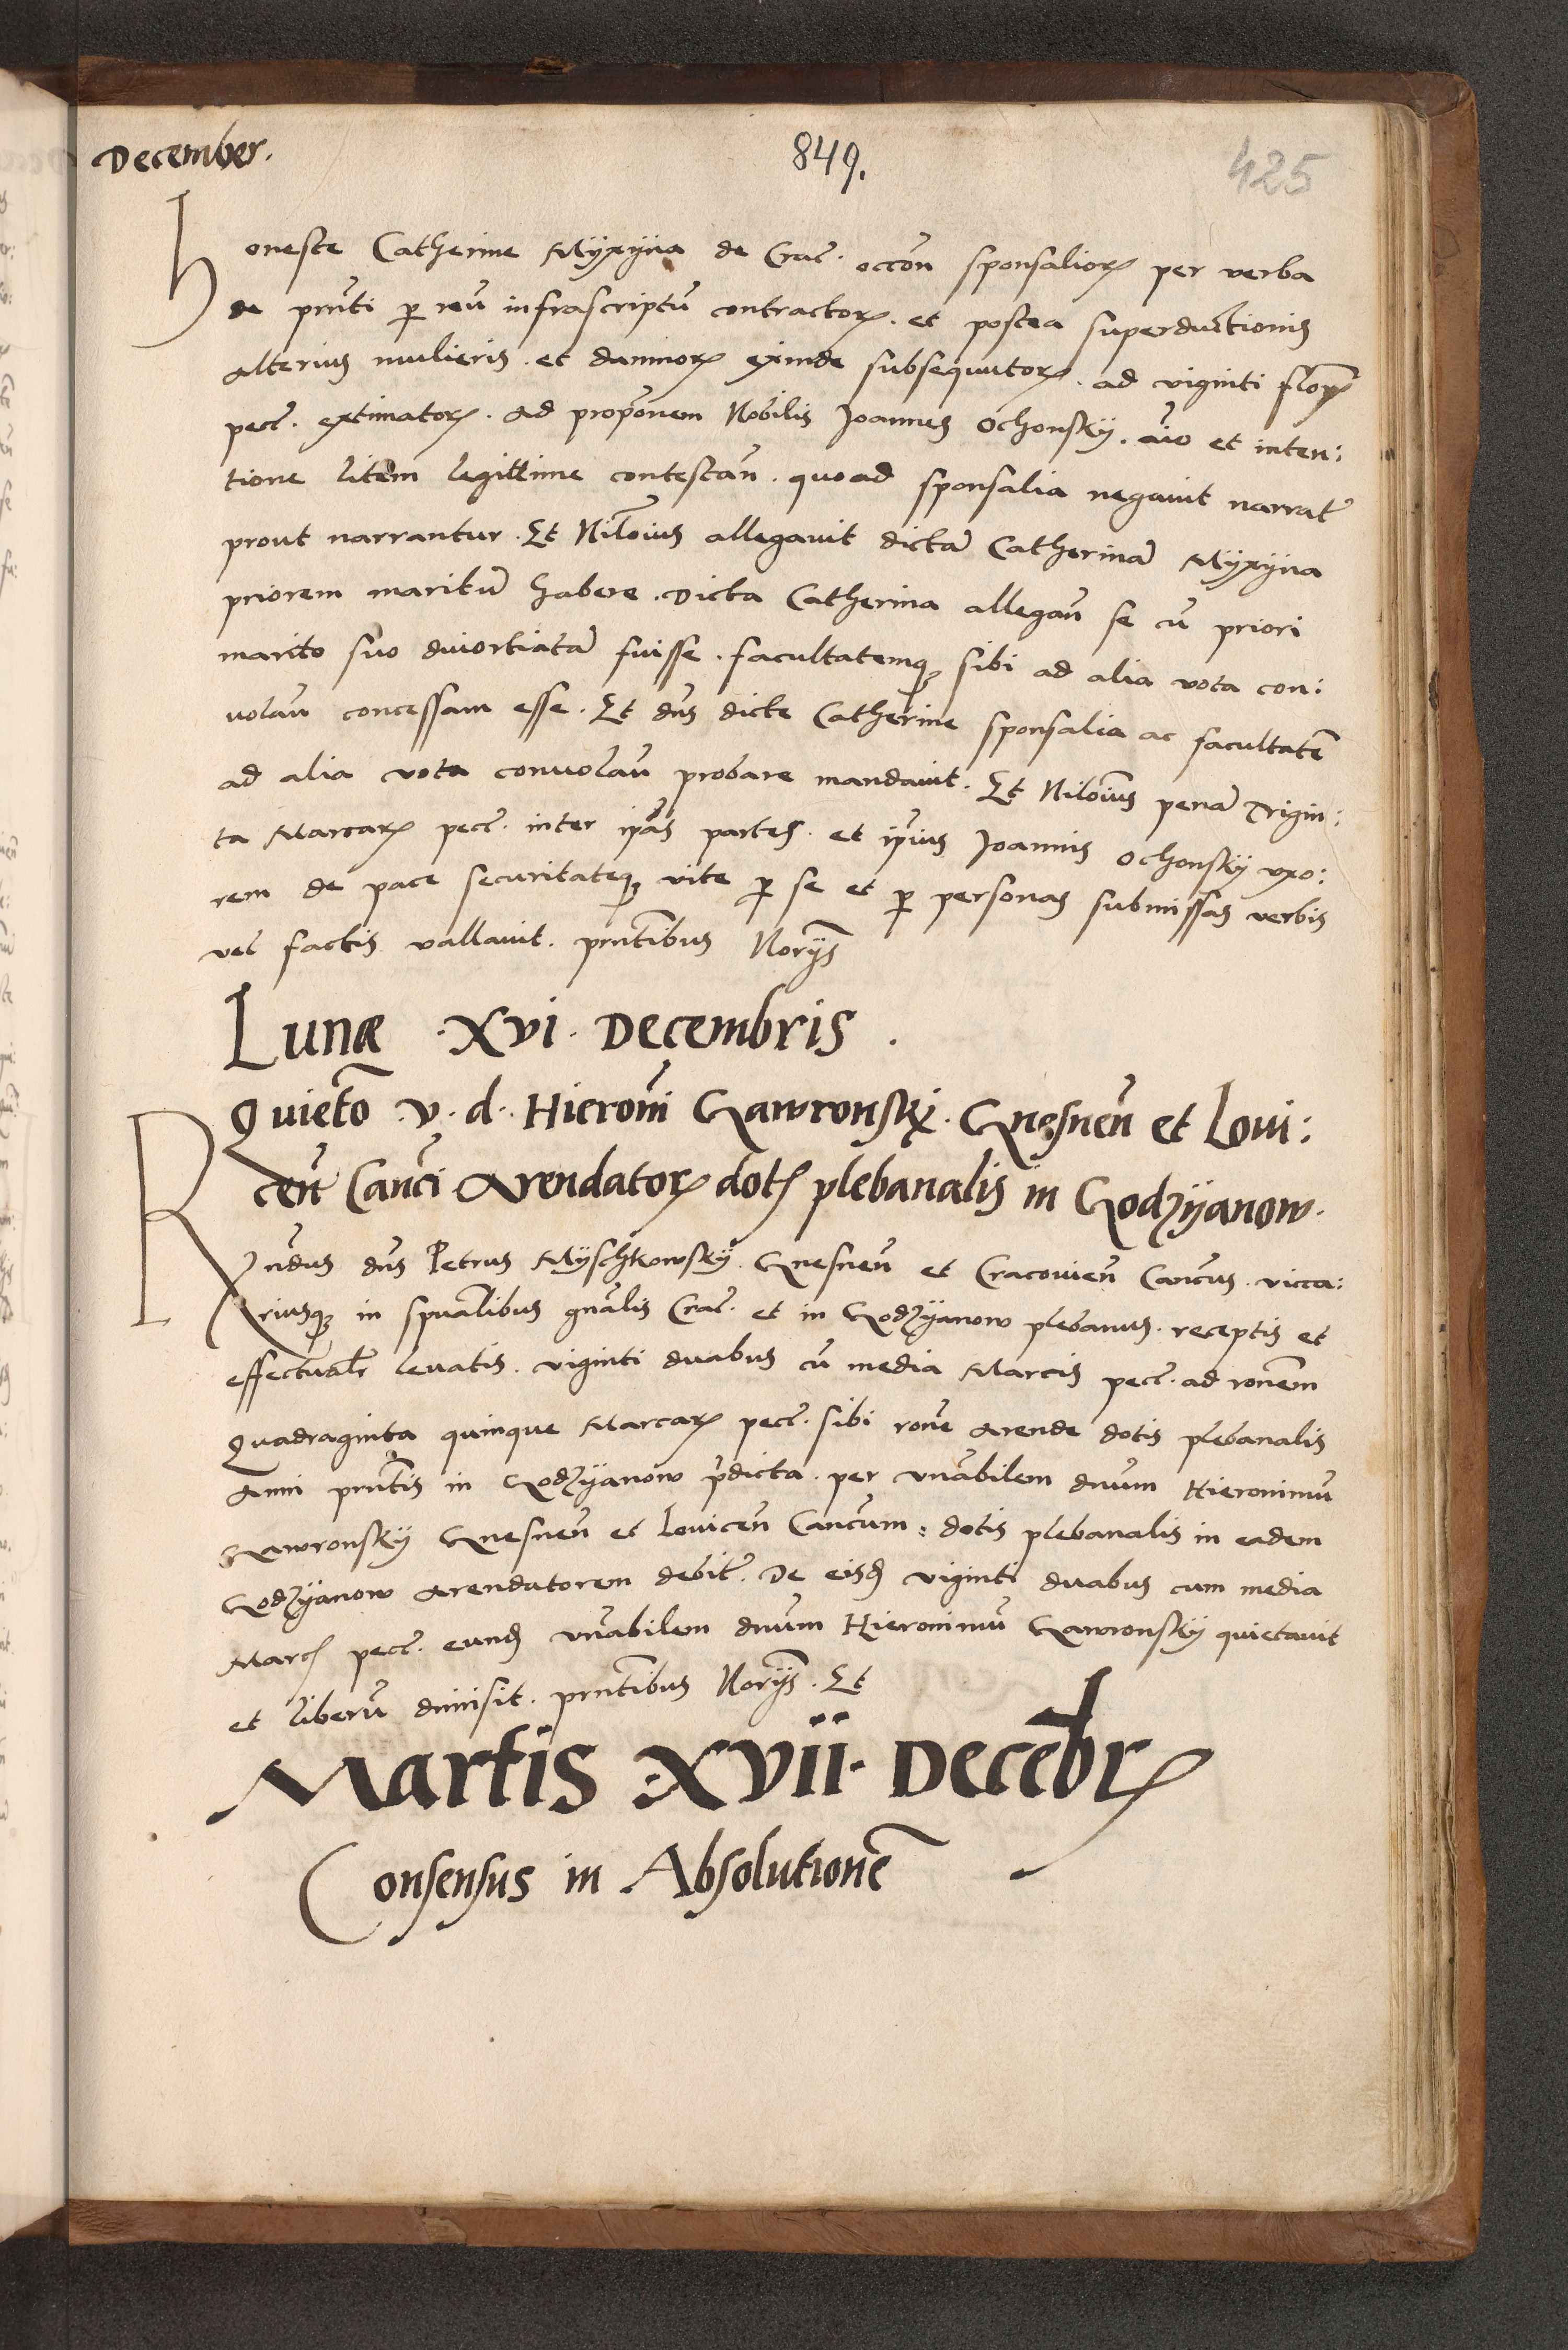 December.
849.
425
honeste Catherine Mÿxÿna de Crac. occõn sponsalioꝝ per verba
de pnti ꝑ reũ infrascriptũ contractoꝝ. et postea superductionis
alterius mulieris. et damnoꝝ exinde subsequutoꝝ. ad viginti floꝝ
pecc. extimatoꝝ. ad propõnem Nobilis Joannes Ochonskÿ. aĩo et inten:
tione litem legittime contestañ. quoad sponsalia negauit narrat̃
prout narrantur. Et Nilõius allegauit dictã Catherinã Mÿxÿna
priorem maritũ habere. Dicta Catherina allegañ se cũ priori
marito suo diuortiatã fuisse. facultatemqꝫ sibi ad alia vota con:
uolañ concessam esse. Et dñs dicte Catherine sponsalia ac facultatẽ
ad alia vota conuolañ probare mandauit. Et Nilõius penã Trigin:
ta Marcaꝝ pecc. inter ip̃as partes. et ip̃ius Joannis Ochonskÿ vxo:
rem de pace securitateqꝫ vite ꝑ se et ꝑ personas submissas verbis
vel factis vallauit. pntĩbus Norÿs
Lunæ .XVI. Decembris.
Quietõ v. d. Hieroñi Gawronskÿ. Gnesneñ et Loui:
ceñ Canci Arendatoꝝ dotꝭ plebanalis in Godzÿanow.
Rñdus dñs Petrus Mÿschkowskÿ Gnesneñ et Cracouieñ Cancus. vicca:
riusqꝫ in spualibus gñalis Crac. et in Godzÿanow plebanus. receptis et
effectualr̃ leuatis. viginti duabus cũ media Marcis pecc. ad rõnem
Quadraginta quinque Marcaꝝ pecc. sibi rõne Arende dotis plebanalis
Anni pntis in Godzÿanow p̃dicta. per vñabilem dnum Hieronimũ
Gawronskÿ Gnesneñ et Louiceñ Cancum: dotis plebanalis in eadem
Godzÿanow Arendatorem debit̃. De eisđ viginti duabus cum media
Marcꝭ pecc. eunđ vñabilem dnum Hieronimũ Gawronskÿ quietauit
et liberũ dimisit. pntĩbus Norÿs. Et
Martis .XVII. Decẽbrꝭ
Consensus in Absolutionẽ